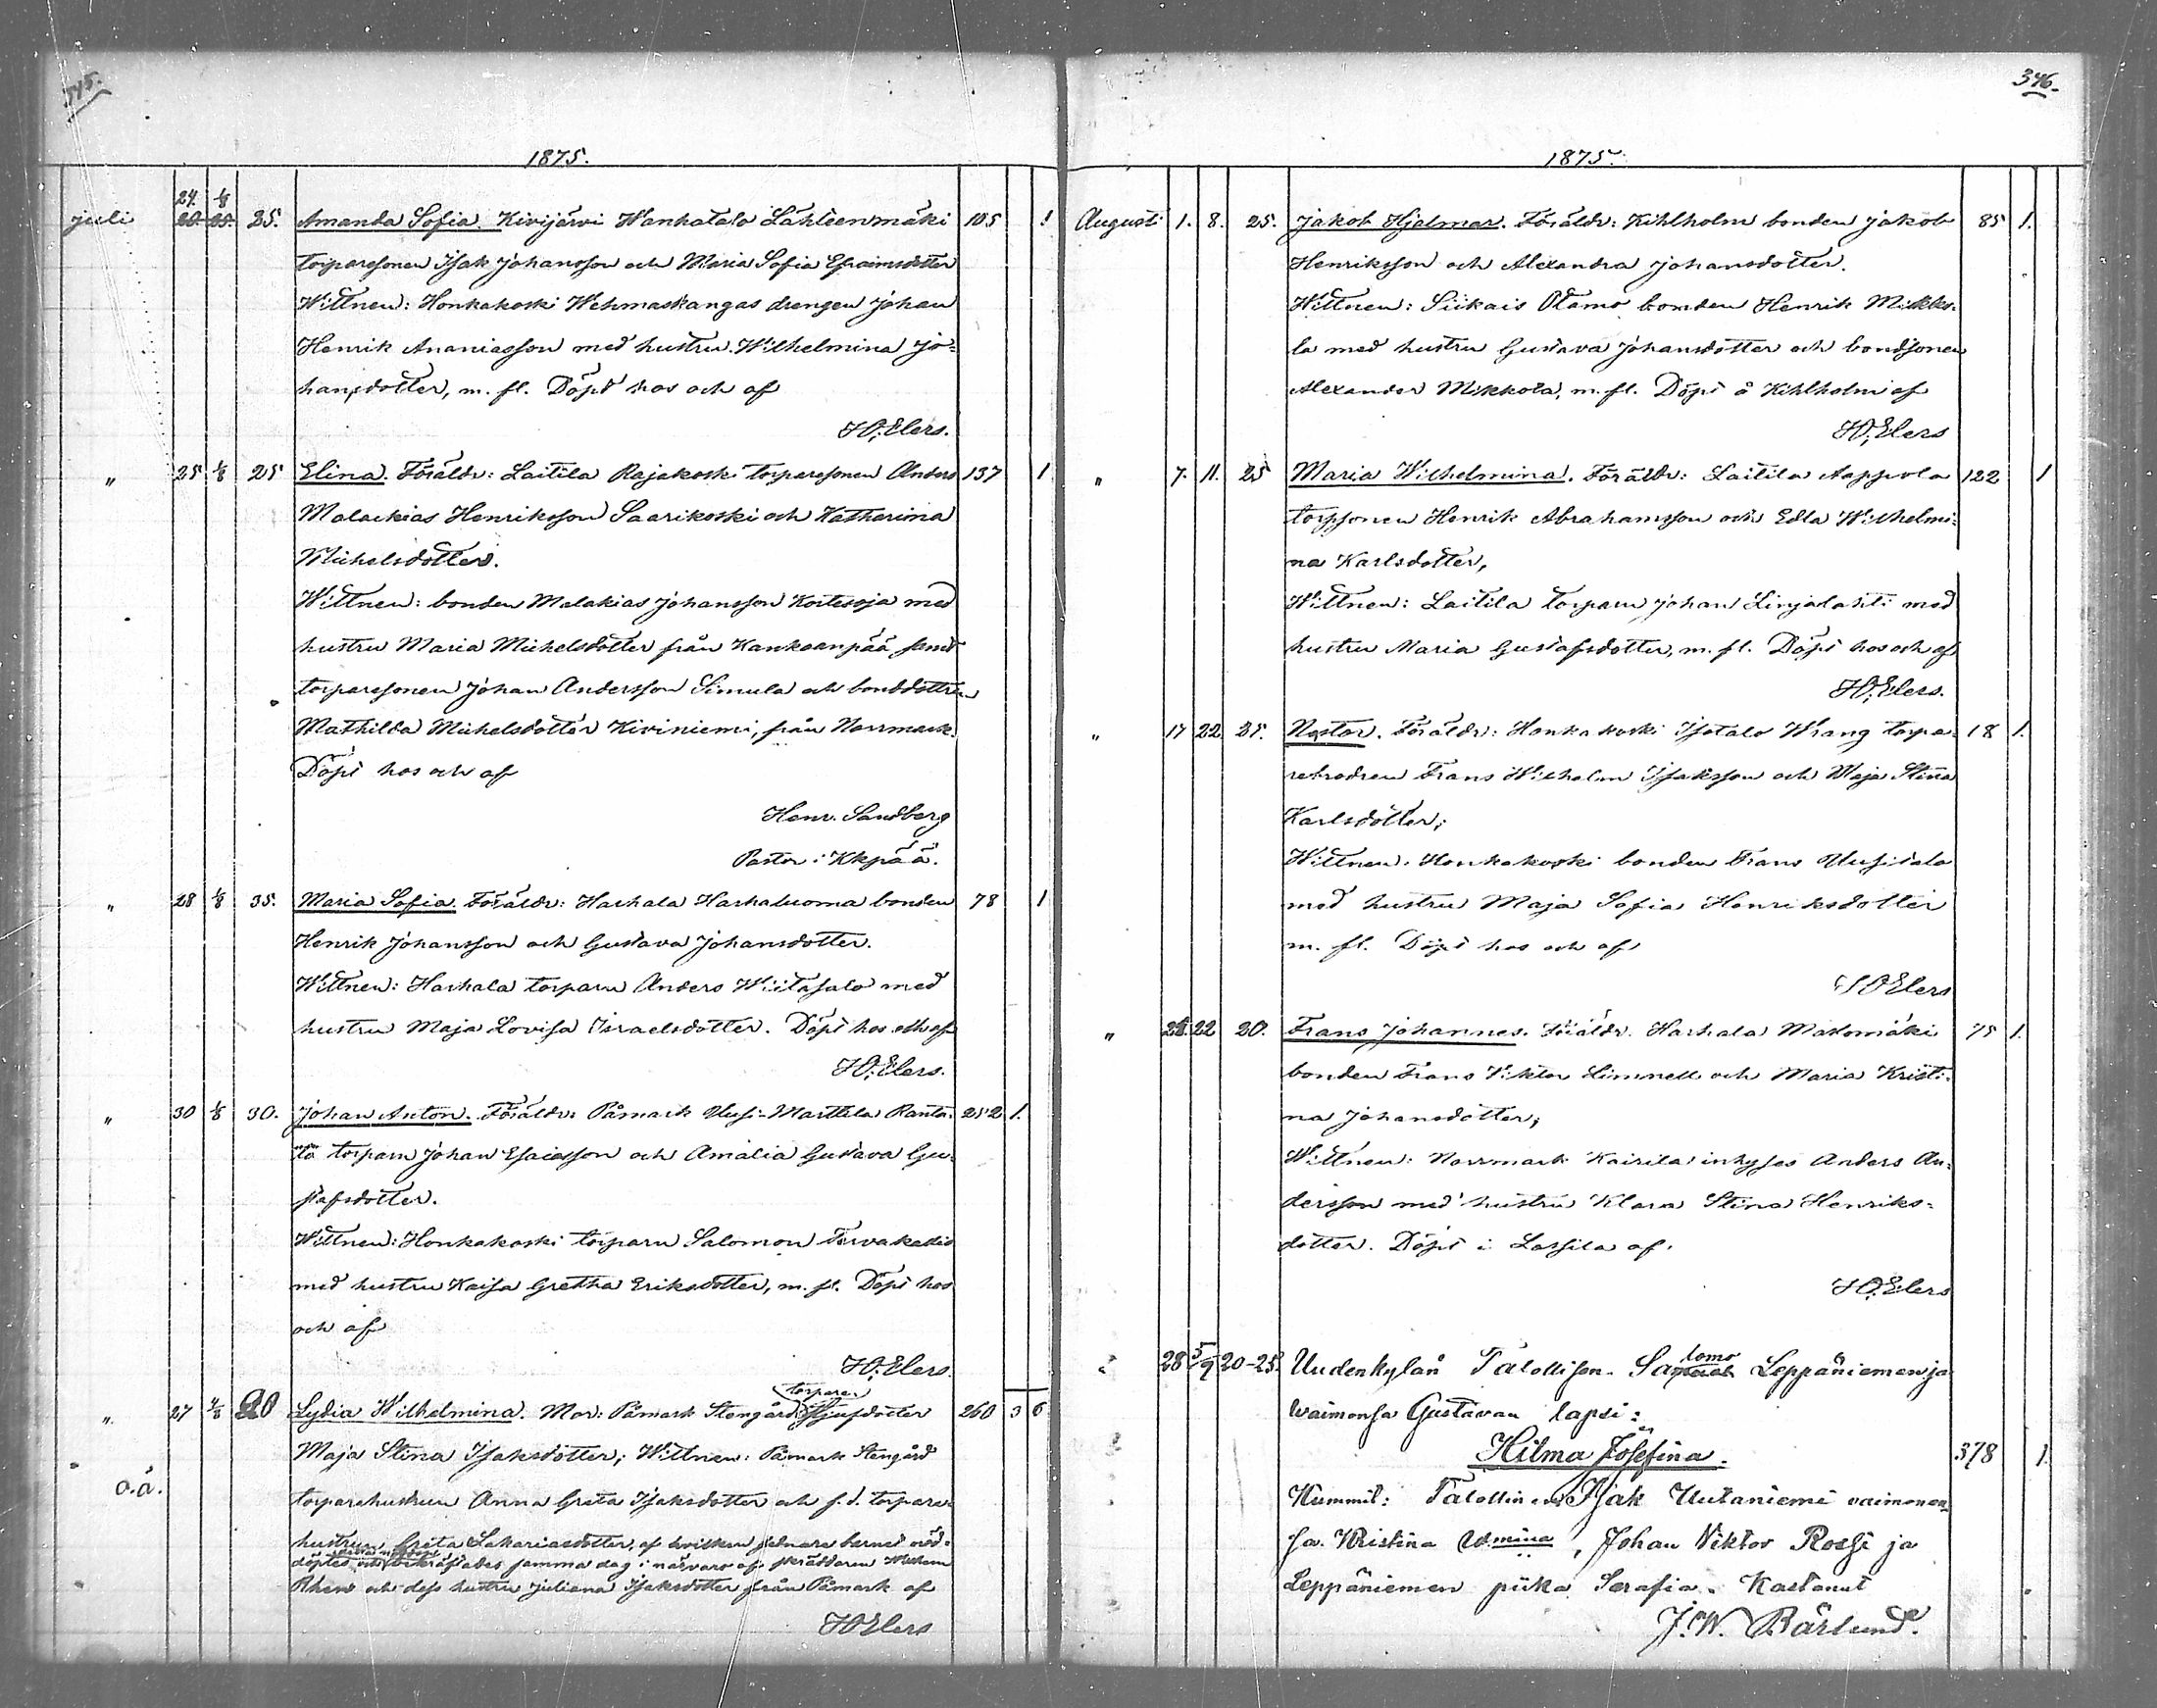 345.
1875.
juli 24. 1/8
20. 25. 25. Amanda Sofia. Kivijärvi Wanhatalo Lähteenmäki 105 1
torparesonen Isak Johansson och Maria Sofia Efraimsdotter
Wittnen: Honkakoski Wehmaskangas drengen Johan
Henrik Ananiasson med hustru Wilhelmina Jo-
hansdotter, m. fl. Döpt hos och af
H O; Elers.
" 25 1/8 25 Elina. Föräldr: Laitila Rajakoski torparesonen Anders 137 1
Malackias Henriksson Saarikoski och Katharina
Michelsdotter.
Wittnen: bonden Malakias Johansson Kortesoja med
hustru Maria Michelsdotter från Kankaanpää samt
torparesonen Johan Andersson Simula och bonddottren
Mathilda Michelsdotter Kiviniemi, från Norrmark.
Döpt hos och af
Henr. Sandberg
Pastor i Kkpää.
" 28 1/8 35. Maria Sofia. Föräldr: Harhala Harhaluoma bonden 78 1
Henrik Johansson och Gustava Johansdotter.
Wittnen: Harhala torparn Anders Wiitasalo med
hustru Maja Lovisa Israelsdotter. Döpt hos och af
H O; Elers.
" 30 1/8 30. Johan Anton. Föräldr: Påmark Uusi-Marttila Ranta- 252 1.
tö torparn Johan Esaiasson och Amalia Gustava Gu-
stafsdotter.
Wittnen: Honkakoski torparn Salomon Tervakallio
med hustru Kaisa Gretha Eriksdotter, m. fl. Döpt hos
och af
H O; Elers.
torpare
" 27 4/8 20 Lydia Wilhelmina. Mor: Påmark Stengård styfdotter 260 3 6
Maja Stina Isaksdotter; Wittnen: Påmark Stengård
o.ä. torparehustrun Anna Greta Isaksdotter och f. d. torpare-
hustrun Greta Sakariasdotter, af hvilken sednare barnet nöd-
döptes och bekräftades samma dag i närvaro af skräddaren Wilhelm
Rhen och dess hustru Juliana Isaksdotter från Påmark af
H O Elers
346.
1875.
Augusti 1. 8. 25. Jakob Hjalmar. Föräldr: Kihlholm bonden Jakob 85 1.
Henriksson och Alexandra Johansdotter.
Wittnen: Siikais Otamo bonden Henrik
la med hustru Gustava Johansdotter och bondsonen
Alexander Mikkola, m. fl. Döpt å Kihlholm af
H O; Elers
" 7. 11. 25 Maria Wilhelmina. Föräldr: Laitila Aappola 122 1
torpsonen Henrik Abrahamsson och Edla Wilhelmi-
na Karlsdotter,
Wittnen: Laitila torparn Johan Linjalahti med
hustru Maria Gustafsdotter, m. fl. Döpt hos och af
H O; Elers.
" 17 22 25. Nestor. Föräldr: Honkakoski Isotalo Wrang torpa- 18 1.
rebrodren Frans Wilhelm Isaksson och Maja Stina
Karlsdotter;
Wittnen: Honkakoski bonden Frans Uusitalo
med hustru Maja Sofia Henriksdotter
m. fl. Döpt hos och af
H O Elers
" 22 20. Frans Johannes. Föräldr. Harhala Matomäki 75 1.
bonden Frans Viktor Limnell och Maria Kristi-
na Johansdotter;
Wittnen: Norrmark Kairila inhyses Anders An-
dersson med hustru Klara Stina Henriks-
dotter. Döpt i Lassila af
H O; Elers
" 28 5/9 20-25. Uudenkylän Talollisen Salomo Leppäniemen ja
waimonsa Gustavan lapsi:
Hilma Josefina. 378 1.
Kummit: Talollinen Isak Uutaniemi vaimonen-
sa Kristina, Johan Viktor Rossi ja
Leppäniemen piika Serafia. Kastanut
J. W. Bärlund.